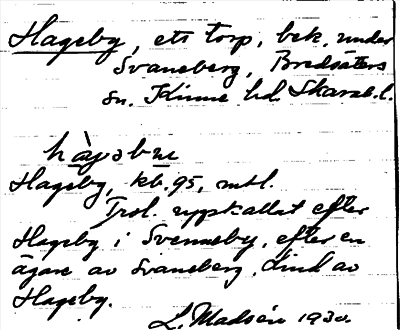 Hageby, ett torp, bek. under
Svaneberg, Bredsäters
sn. Kinne hd. Skarab. l.
hàgabne
Hageby, kb. 95, mtl.
Trol. uppkallat efter
Hageby i Svenneby, efter en
ägare av Svaneberg, död av
Hageby.
L. Madsén 1930